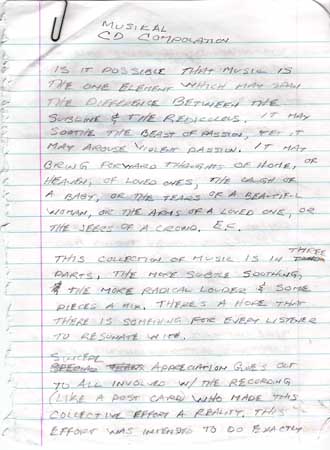 MUSIKAL
CD COMPOLATION
IS IT POSSIBLE THAT MUSIC IS
THE ONE ELEMENT WHICH MAY SPAN
THE DIFFERENCE BETWEEN THE
SUBLIME & THE REDICLOUS. IT MAY
SOOTHE THE BEAST OF PASSION, YET IT
MAY AROUSE VIOLENT PASSION. IT MAY
BRING FORWARD THOUGHTS OF HOME, OR
HEAVEN, OF LOVED ONES, THE LAUGH OF
A BABY, OR THE TEARS OF A BEAUTIFUL
WOMAN, OR THE ARMS OF A LOVED ONE, OR
THE JEERS OF A CROWD. E.F.
THIS COLLECTION OF MUSIC IS IN THREE
PARTS, THE MORE SUBTLE SOOTHING,
& THE MORE RADICAL LOUDER & SOME
PIECES A MIX. THERE'S A HOPE THAT
THERE IS SOMETHING FOR EVERY LISTENER
TO RESONATE WITH.
SINCERE
SPECIAL APPRECIATION GOES OUT
TO ALL INVOLVED W/ THE RECORDING
(LIKE A POST CARD) WHO MADE THIS
COLLECTIVE EFFORT A REALITY. THIS
EFFORT WAS INTENDED TO DO EXACTLY